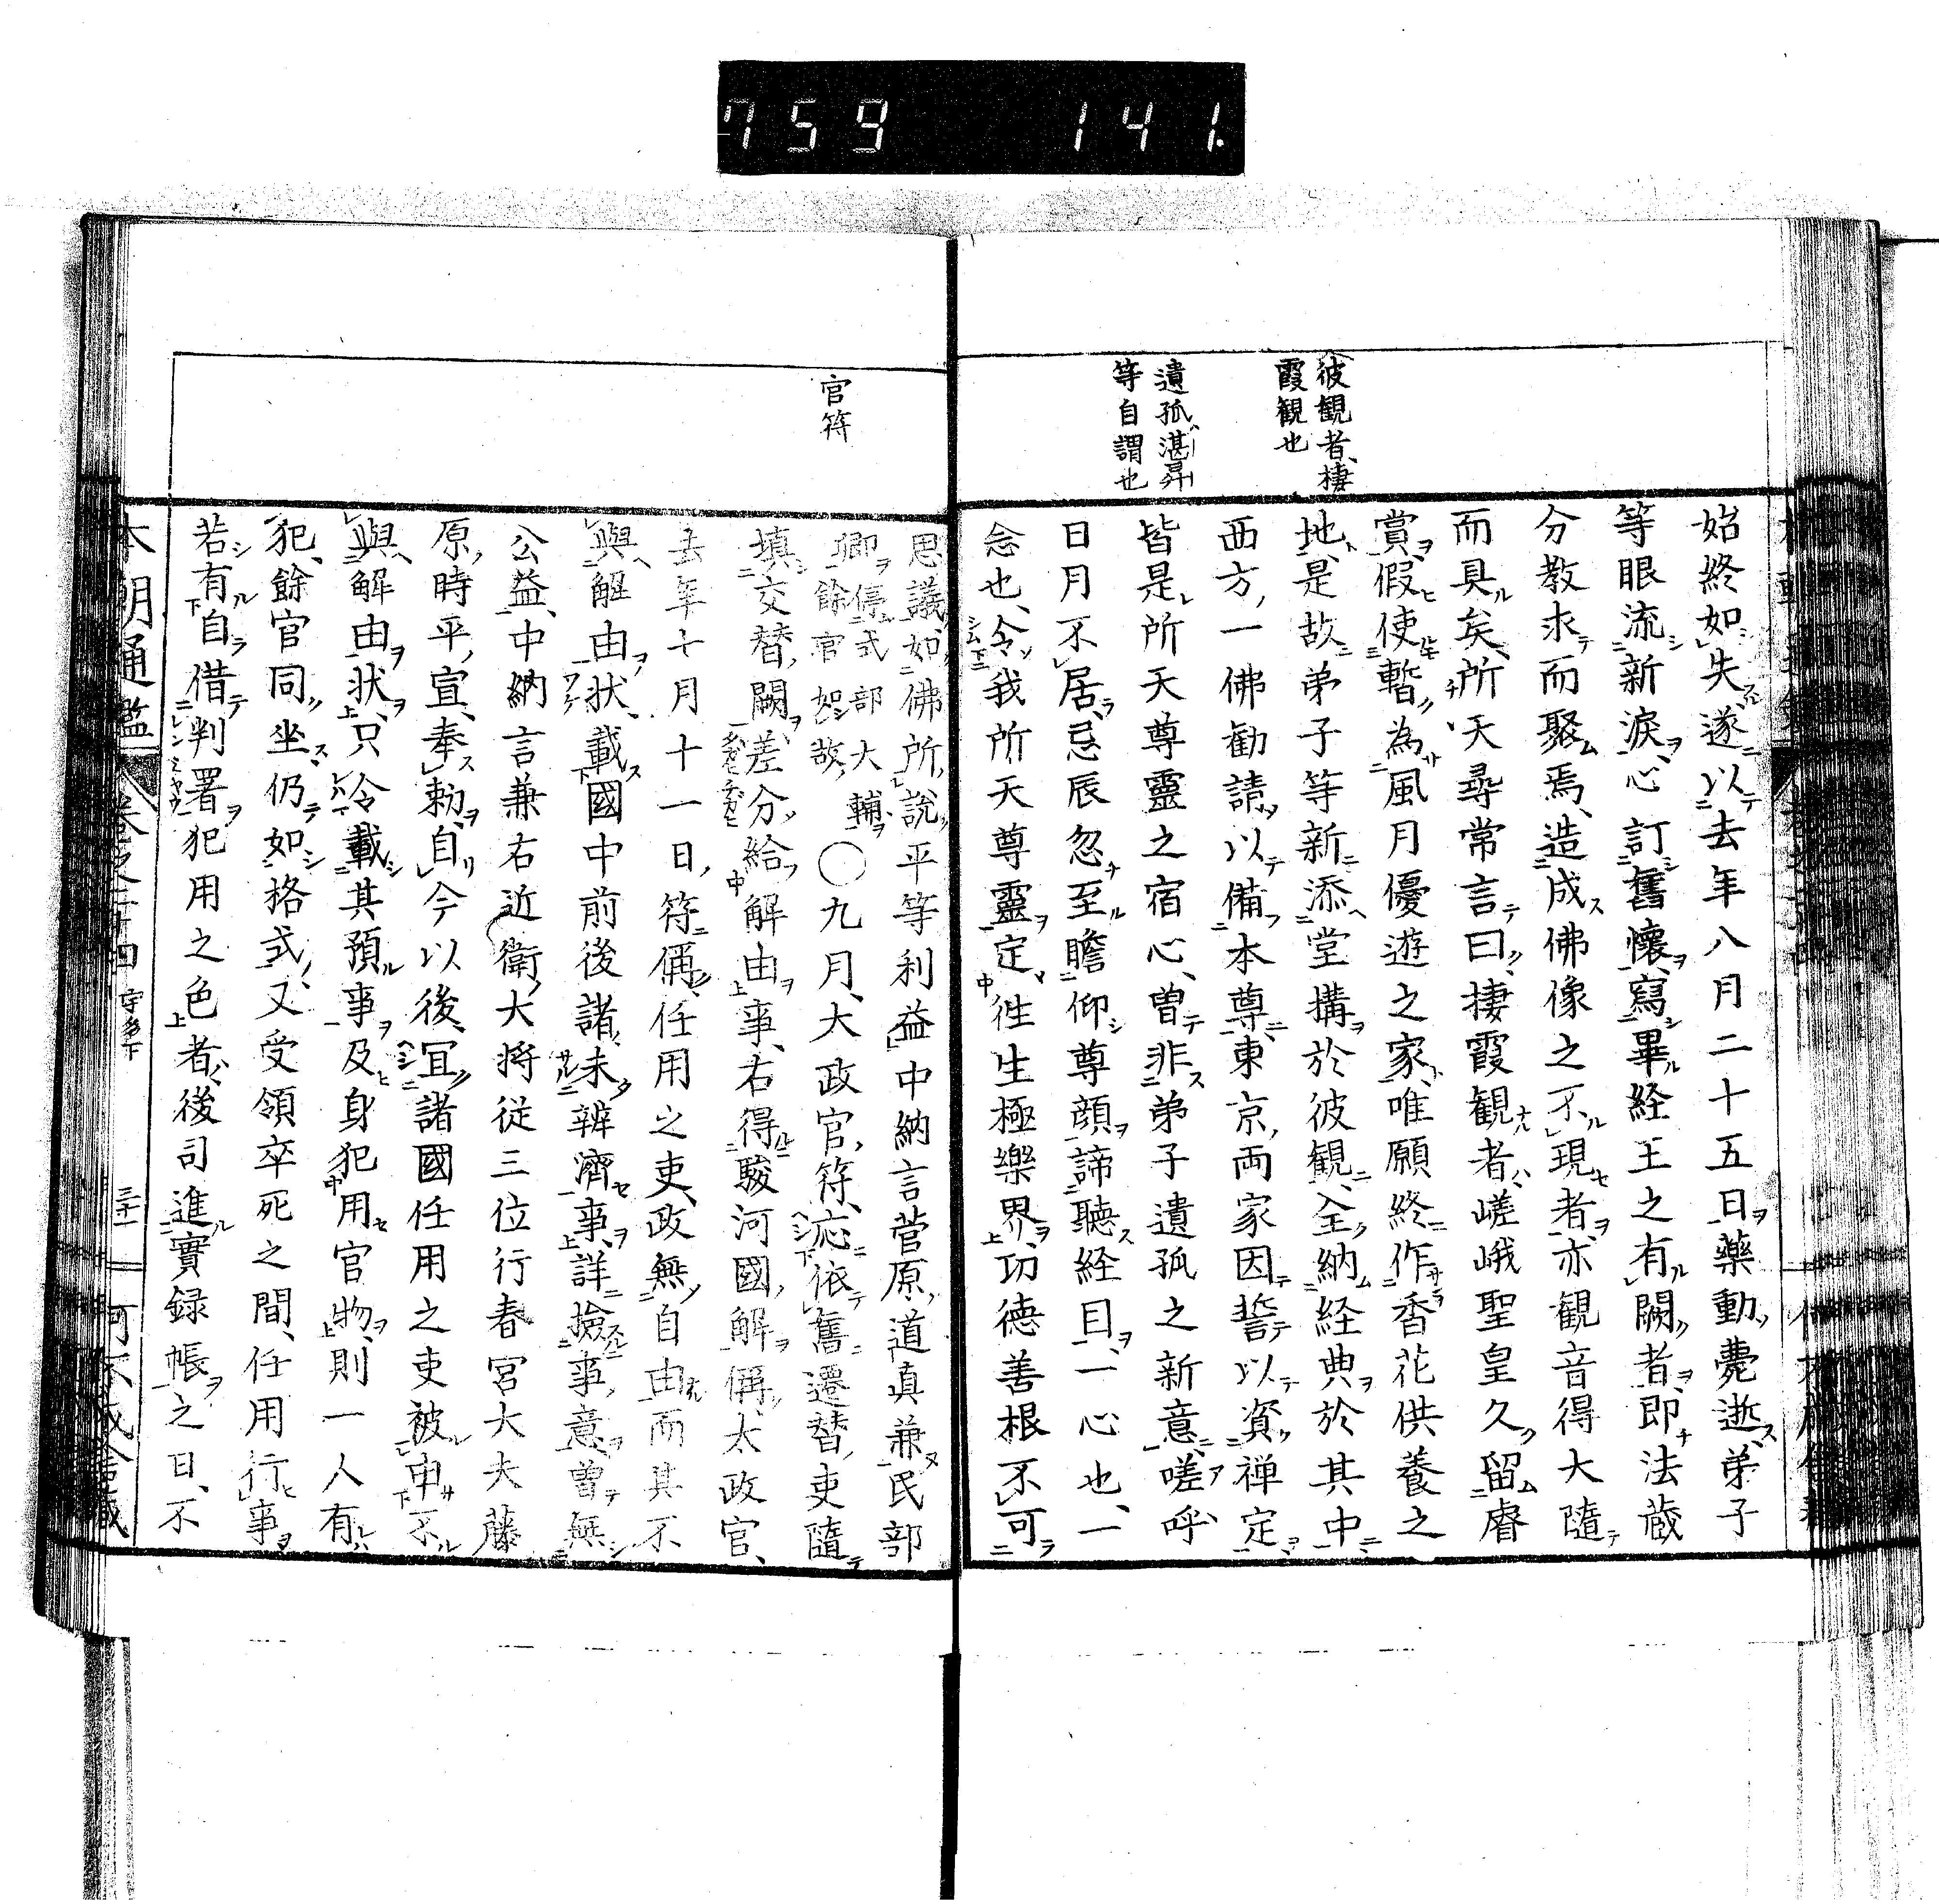 759 141.
彼観者棲
霞観也
遺孤湛昇
等自謂也
始終如失遂以去年八月二十五日藥動薨逝弟子
等眼流新涙心訂舊懷寫畢経王之有闕者即法蔵
分教求而聚焉造成佛像之不現者亦観音得大隨
而具矣所天尋常言曰棲霞観者嵯峨聖皇久留睿
賞假使暫為風月優遊之家唯願終作香花供養之
地是故弟子等新添堂搆於彼観全納経典於其中
西方一佛勧請以備本尊東京両家因誓以資禅定
皆是所天尊靈之宿心曽非弟子遺孤之新意嗟呼
日月不居忌辰忽至瞻仰尊顔諦聴経目一心也一
念也令我所天尊靈定徃生極樂界功徳善根不可
官符
思議如佛所說平等利益中納言菅原道真兼民部
卿停式部大輔餘官如故〇九月大政官符応依舊遷替吏隨
填交替闕差分給解由事右得駿河國解偁太政官
去年七月十一日符偁任用之吏政無自由而其不
與解由状載國中前後諸未辨濟事詳撿事意曽無
公益中納言兼右近衛大将従三位行春宮大夫藤
原時平宣奉勅自今以後冝諸國任用之吏被申不
與解由状只令載其預事及身犯用官物則一人有
犯餘官同坐仍如格式又受領卒死之間任用行事
若有自借判署犯用之色者後司進實録帳之日不
本朝通鑑 卷之二十四 宇多下 三十一